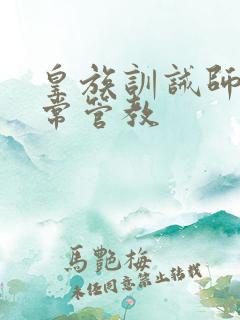 皇族訓誡師
常管教
馬艷梅
未经同意禁止转载